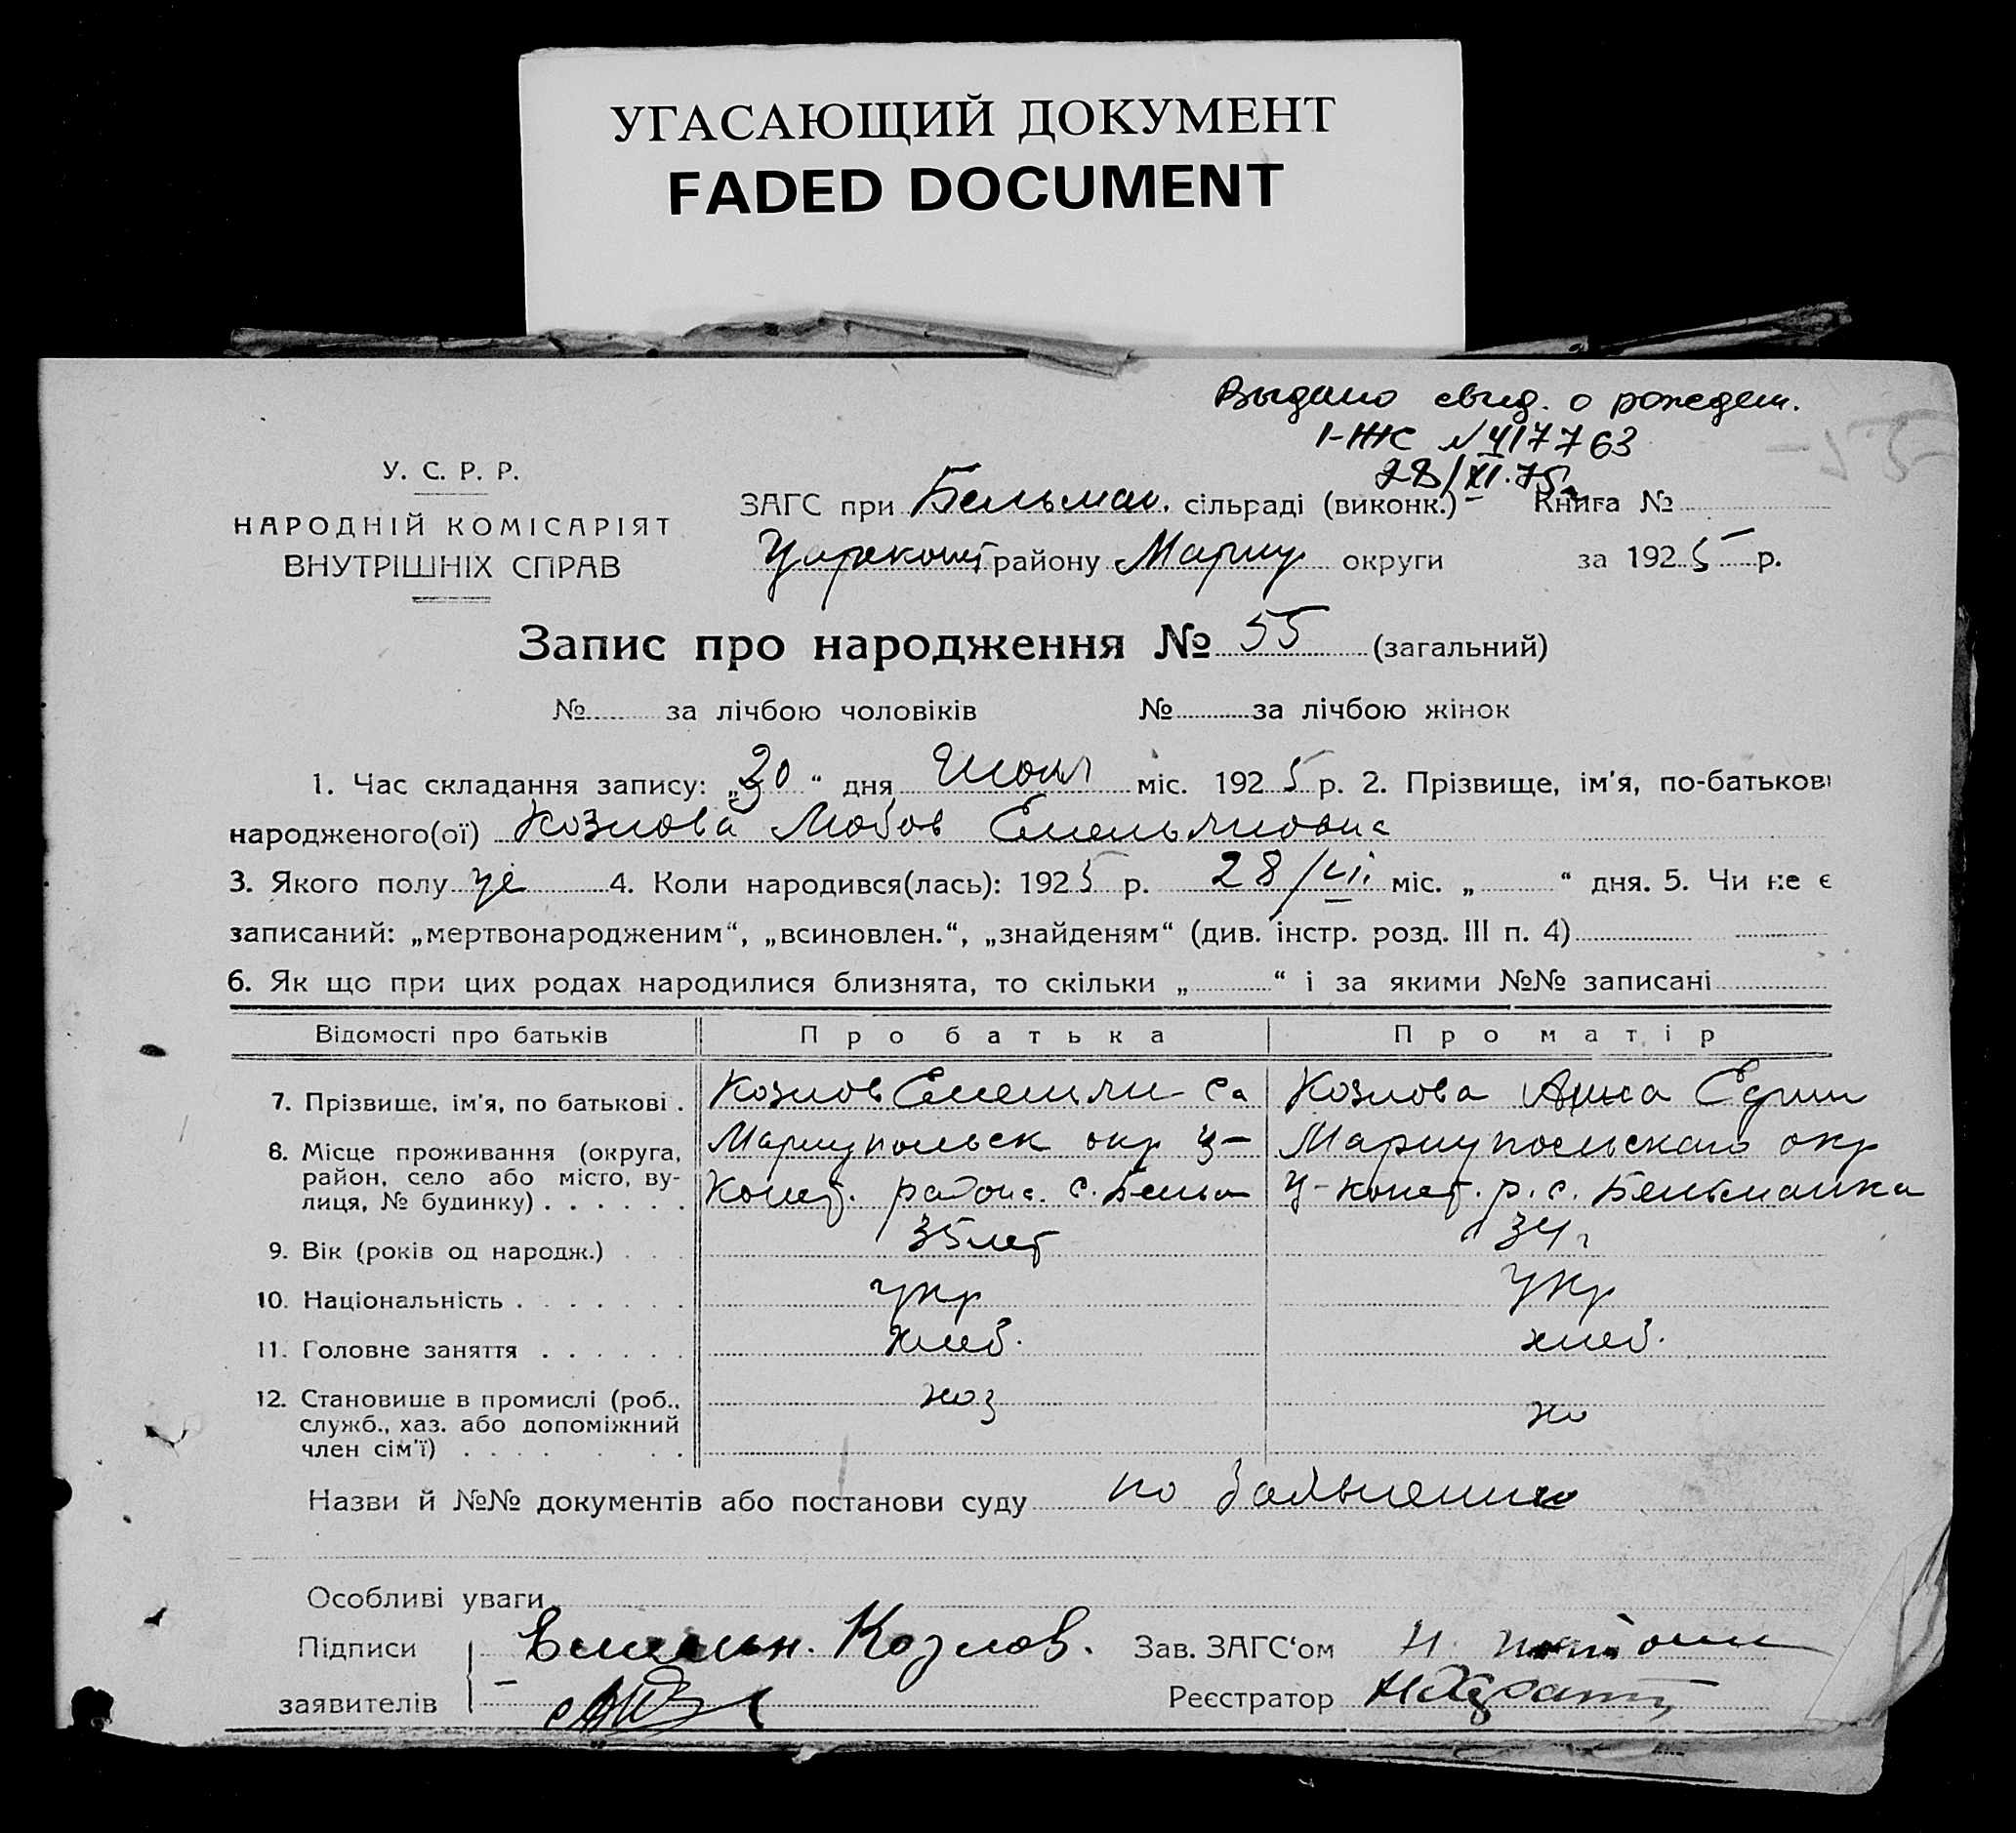 УГАСАЮЩИЙ ДОКУМЕНТ
FADED DOCUMENT
Выдано свид. о рожден.
I-ЖС № 417763
28/XI.75г.
У. С. Р. Р.
НАРОДНІЙ КОМІСАРІЯТ
ВНУТРІШНІХ СПРАВ
ЗАГС при Бельман. сільраді (виконк.) Книга №
Царекон району Мариу округи за 1925 р.
Запис про народження № 55 (загальний)
№ за лічбою чоловіків № за лічбою жінок
1. Час складання запису: „30“ дня Июня міс. 1925 р. 2. Прізвище, ім'я, по-батькові
народженого(ої) Козлова Любов Емельяновна
3. Якого полу 4. Коли народився(лась): 1925 р. 28/VI. міс. „ “ дня. 5. Чи не є
записаний: „мертвонародженим“, „всиновлен.“, „знайденям“ (див. інстр. розд. III п. 4)
6. Як що при цих родах народилися близнята, то скільки „ “ і за якими №№ записані
Відомості про батьків Про батька Про матір
7. Прізвище, ім'я, по батькові . Козлов Емельян Козлова Анна
8. Місце проживання (округа, Мариупольск окр Ц- Мариупольскаго окр
район, село або місто, ву- Конст. района с. Бельм Ц-конст. р. с. Бельманка
лиця, № будинку) . . . . . .
9. Вік (років од народж.) . . . 35 лет 34 г
10. Національність . . . . . . . укр укр
11. Головне заняття . . . . . . хлеб. хлеб.
12. Становище в промислі (роб.. хоз
служб., хаз. або допоміжний
член сім'ї) . . . . . . .
Назви й №№ документів або постанови суду по Заявлению
Особливі уваги
Підписи Емельян. Козлов. Зав. ЗАГС‘ом
заявителів Реєстратор